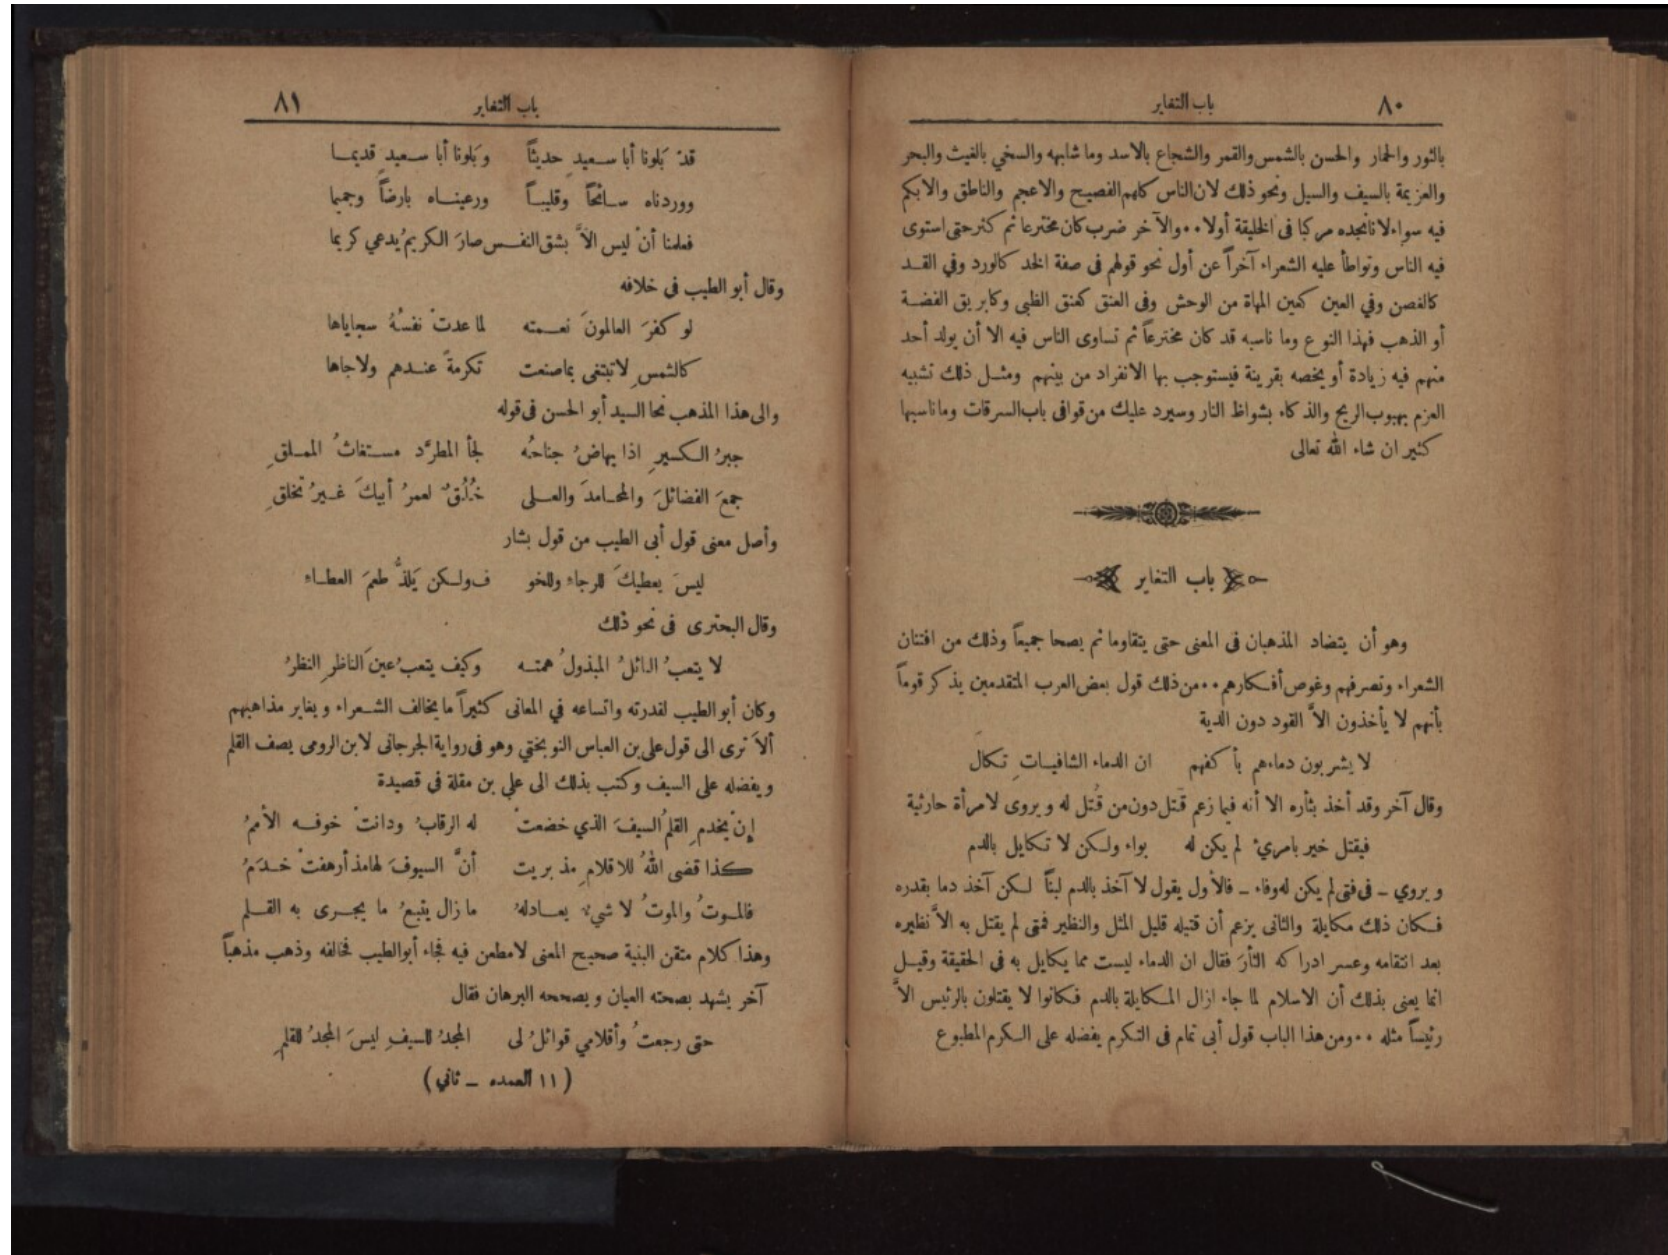 ٨٠ باب التغاير
بالثور والحمار والحسن بالشمس والقمر والشجاع بالاسد وما شابهه والسخي بالغيث والبحر
والعزيمة بالسيف والسيل ونحو ذلك لان الناس كلهم الفصيح والاعجم والناطق والابكم
فيه سواء لانا نجده مركبا فى الخليقة أولا ٠٠ والآخر ضرب كان مخترعا ثم كثر حتى استوى
فيه الناس وتواطأ عليه الشعراء آخراً عن أول نحو قولهم فى صفة الخد كالورد وفي القد
كالغصن وفي العين كعين المهاة من الوحش وفى العنق كعنق الظبى وكابريق الفضة
أو الذهب فهذا النوع وما ناسبه قد كان مخترعاً ثم تساوى الناس فيه الا أن يولد أحد
منهم فيه زيادة أو يخصه بقرينة فيستوجب بها الانفراد من بينهم ومثل ذلك تشبيه
العزم بهبوب الريح والذكاء بشواظ النار وسيرد عليك من قوافى باب السرقات وما ناسبها
كثير ان شاء الله تعالى
باب التغاير
وهو أن يتضاد المذهبان فى المعنى حتى يتقاوما ثم يصحا جميعاً وذلك من افتنان
الشعراء وتصرفهم وغوص أفكارهم ٠٠ من ذلك قول بعض العرب المتقدمين يذكر قوماً
بأنهم لا يأخذون الاَّ القود دون الدية
لا يشربون دماءهم بأكفهم ان الدماء الشافيات تكال
وقال آخر وقد أخذ بثأره الا أنه فيما زعم قَتل دون من قُتل له ويروى لامرأة حارثية
فيقتل خير بامرئ لم يكن له بواء ولكن لا تكايل بالدم
ويروي ــ فى فتى لم يكن له وفاء ــ فالأول يقول لا آخذ بالدم لبناً لكن آخذ دما بقدره
فكان ذلك مكايلة والثانى يزعم أن قتيله قليل المثل والنظير فمتى لم يقتل به الاَّ نظيره
بعد انتقامه وعسر ادراكه الثأرَ فقال ان الدماء ليست مما يكايل به في الحقيقة وقيل
انما يعنى بذلك أن الاسلام لما جاء ازال المكايلة بالدم فكانوا لا يقتلون بالرئيس الاَّ
رئيساً مثله ٠٠ ومن هذا الباب قول أبى تمام فى التكرم يفضله على الكرم المطبوع
باب التغاير ٨١
قدْ بَلونا أبا سعيدٍ حديثاً وبَلونا أبا سعيدٍ قديما
ووردناه سائحاً وقليباً ورعيناه بارضاً وجميما
فعلمنا أنْ ليس الاَّ بشق النفس صارَ الكريمُ يدعي كريما
وقال أبو الطيب فى خلافه
لو كفرَ العالمونَ نعمته لما عدتْ نفسُهُ سجاياها
كالشمسِ لا تبتغى بما صنعت تكرمةً عندهم ولا جاها
والى هذا المذهب نحا السيد أبو الحسن فى قوله
جبرُ الكسيرِ اذا يهاضُ جناحُه لجأ المطرَّد مستغاثُ المملقِ
جمعَ الفضائلَ والمحامدَ والعلى خُلُقٌ لعمرُ أبيكَ غيرُ تخلقِ
وأصل معنى قول أبى الطيب من قول بشار
ليسَ يعطيكَ للرجاءِ وللخو فِ ولكن يَلذُّ طعمَ العطاء
وقال البحترى فى نحو ذلك
لا يتعبُ النائلُ المبذولُ همته وكيف يتعبُ عينَ الناظرِ النظرُ
وكان أبو الطيب لقدرته واتساعه في المعانى كثيراً ما يخالف الشعراء ويغاير مذاهبهم
ألاَ ترى الى قول على بن العباس النوبختي وهو فى رواية الجرجانى لابن الرومى يصف القلم
ويفضله على السيف وكتب بذلك الى علي بن مقلة في قصيدة
إنْ يخدمِ القلمُ السيفَ الذي خضعتْ له الرقابُ ودانتْ خوفه الأممُ
كذا قضى اللهُ للاقلامِ مذ بريت أنَّ السيوفَ لها مذ أرهفتْ خدَمُ
فالموتُ والموتُ لا شيءَ يعادلهُ ما زال يتبعُ ما يجرى به القلم
وهذا كلام متقن البنية صحيح المعنى لا مطعن فيه فجاء أبو الطيب فخالفه وذهب مذهباً
آخر يشهد بصحته العيان ويصححه البرهان فقال
حتى رجعتُ وأقلامي قوائلُ لى المجدُ للسيفِ ليسَ المجدُ للقلمِ
( ١١ العمده ــ ثاني )